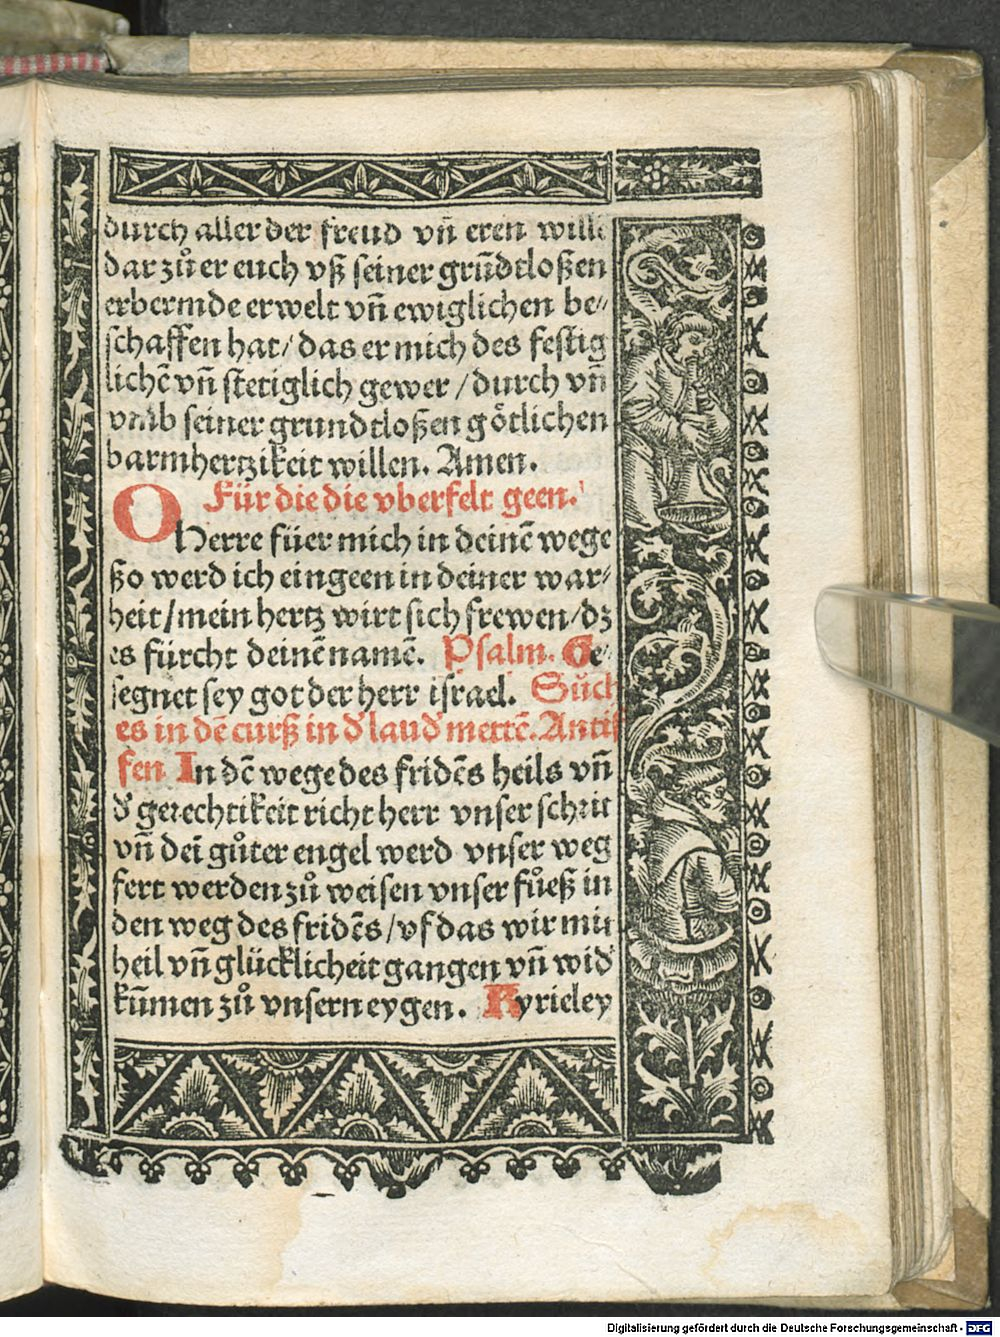 durch aller der freud vñ eren wille
dar zů er euch vß seiner grũdtloßen
erbermde erwelt vñ ewiglichen be⸗
schaffen hat/ das er mich des festig
lichẽ vñ stetiglich gewer /durch vñ
vmb seiner grundtloßen götlichen
barmhertzikeit willen. Amen.
Für die die vberfelt geen.
O Herre füer mich in deinẽ wege
ßo werd ich eingeen in deiner war⸗
heit/mein hertz wirt sich frewen/dz
es fürcht deinẽ namẽ. Psalm. Ge⸗
segnet sey got der herr israel. Sůch
es in dẽ curß in dˀ laudˀ mettẽ. Antif
fen In dẽ wege des fridẽs heils vñ
dˀ gerechtikeit richt herr vnser schrit
vñ deĩ gůter engel werd vnser weg
fert werden zů weisen vnser fůeß in
den weg des fridẽs/vf das wir mit
heil vñ glücklicheit gangen vñ widˀ
kũmen zů vnsern eygen. Kyrieley
Digitalisierung gefördert durch die Deutsche Forschungsgemeinschaft - DFG